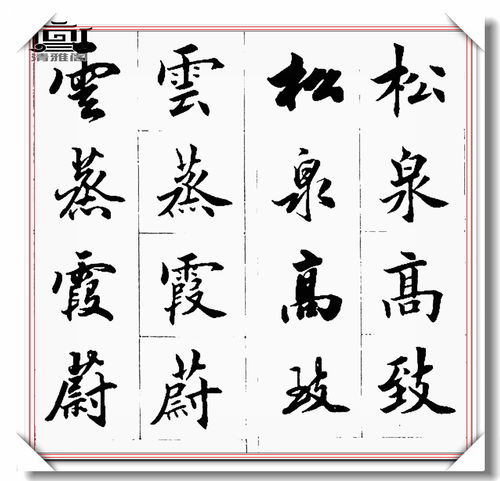 松泉高致
松泉高致
雲蒸霞蔚
雲蒸霞蔚
清雅阁